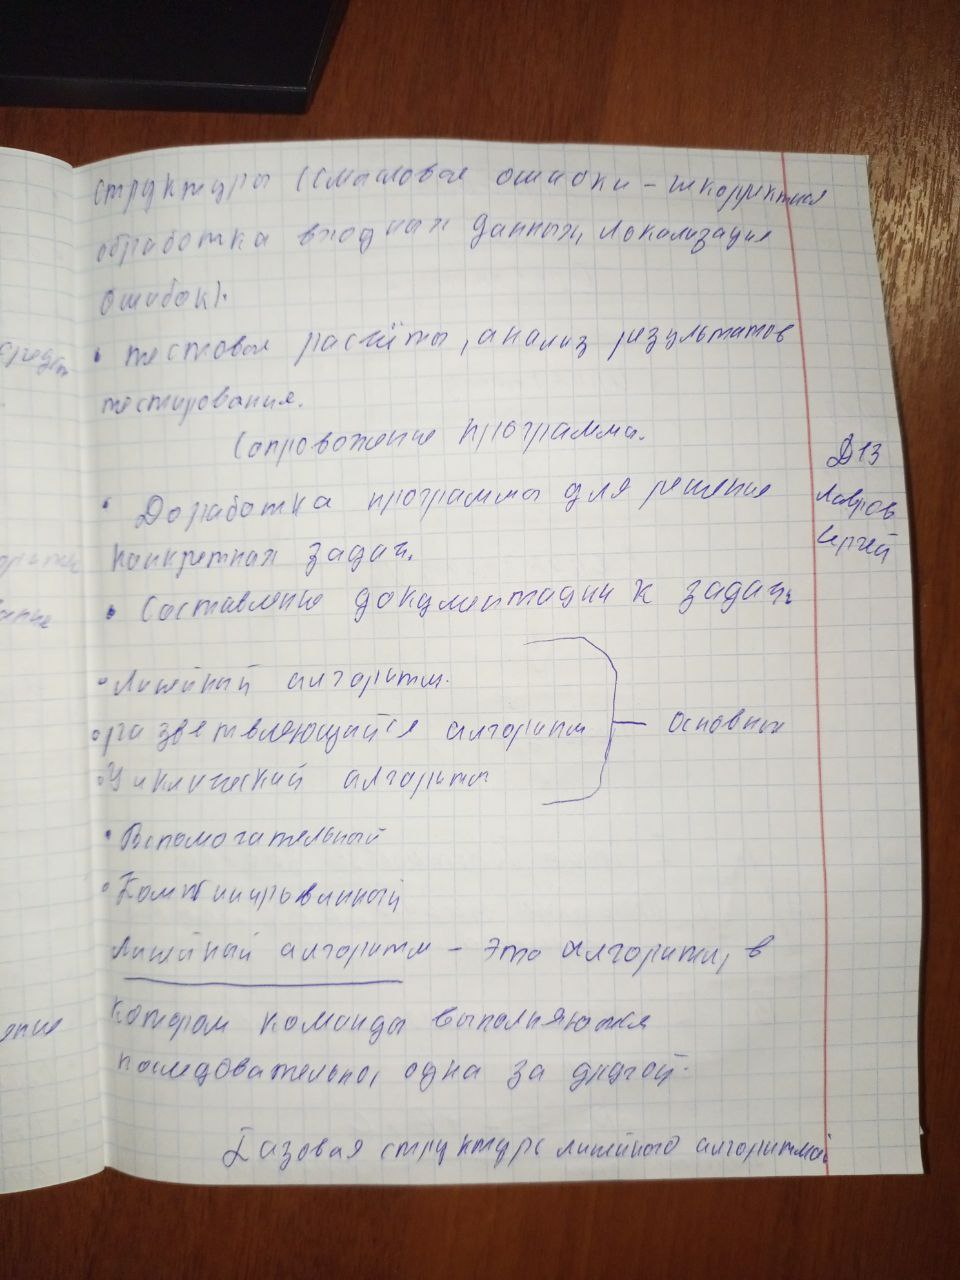 структуры (смысловые ошибки - некорректная
обработка входных данных, локализация
ошибок).
• тестовые расчёты, анализ результатов
тестирования.
Сопровожение программа.
• Доработка программы для решения
конкретных задач.
• Составление документации к задач
• Линейный алгоритм.
• разветвляющийся алгоритм
основных
• Циклический алгоритм
• Вспомогательный
• Комбинированный
Линейный алгоритм - это алгоритм, в
котором команды выполняются
последовательно, одна за другой.
Базовая структура линейного алгоритма
Д13
Лавров
Сергей